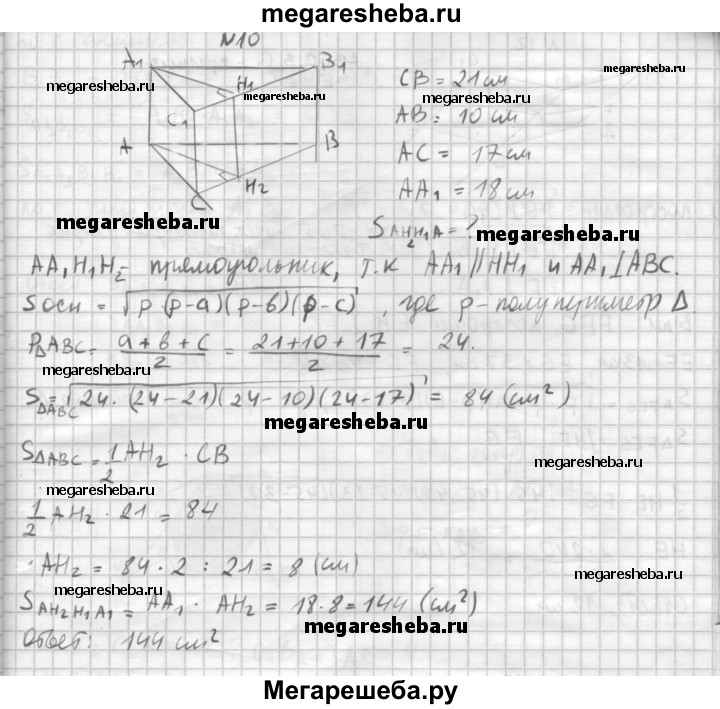 megaresheba.ru
N10
A1
B1
H1
C1
A
B
C
H2
megaresheba.ru
megaresheba.ru
megaresheba.ru
megaresheba.ru
CB = 21 см
AB = 10 см
AC = 17 см
AA1 = 18 см
megaresheba.ru
S AH2H1A = ?
megaresheba.ru
AA1H1H2 - прямоугольник, т.к AA1 // HH1 и AA1 ⊥ ABC.
S осн = √p·(p-a)(p-b)(p-c), где p - полупериметр Δ.
PΔABC = (a+b+c)/2 = (21+10+17)/2 = 24.
megaresheba.ru
SΔABC = √24·(24-21)(24-10)(24-17) = 84 (см²)
megaresheba.ru
SΔABC = 1/2 AH2 · CB
megaresheba.ru
megaresheba.ru
1/2 AH2 · 21 = 84
AH2 = 84 · 2 : 21 = 8 (см)
megaresheba.ru
megaresheba.ru
S AH2H1A1 = AA1 · AH2 = 18·8 = 144 (см²)
megaresheba.ru
Ответ: 144 см²
Мегарешеба.ру